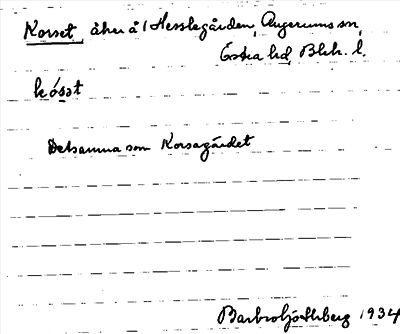 Korset, åker å 1 Hesslegården, Augerums sn,
Östra hd, Blek. l.
kósət
Detsamma som Korsagärdet
Barbro Ljo Ahlberg 1934